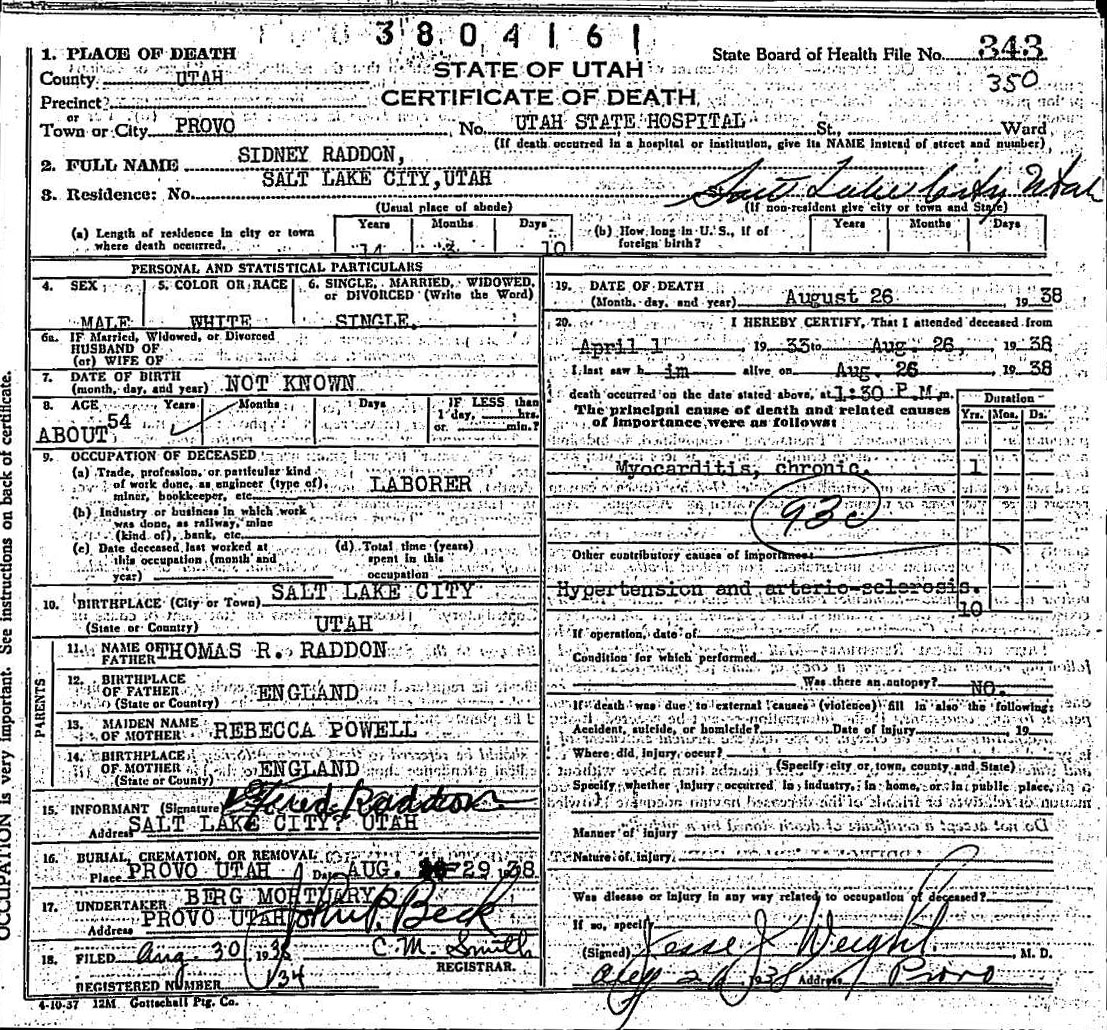 3804161
1. PLACE OF DEATH
State Board of Health File No. 343
County UTAH
STATE OF UTAH
350
Precinct
CERTIFICATE OF DEATH
or
Town or City PROVO No. UTAH STATE HOSPITAL St., Ward
(If death occurred in a hospital or institution, give its NAME instead of street and number)
2. FULL NAME SIDNEY RADDON,
3. Residence: No. SALT LAKE CITY, UTAH Salt Lake City Utah
(Usual place of abode) (If non-resident give city or town and State)
(a) Length of residence in city or town where death occurred. Years 14 Months 3 Days 10
(b) How long in U. S., if of foreign birth? Years Months Days
PERSONAL AND STATISTICAL PARTICULARS
4. SEX 5. COLOR OR RACE 6. SINGLE, MARRIED, WIDOWED, or DIVORCED (Write the Word)
MALE WHITE SINGLE.
6a. IF Married, Widowed, or Divorced
HUSBAND OF
(or) WIFE OF
7. DATE OF BIRTH
(month, day, and year) NOT KNOWN
8. AGE Years Months Days IF LESS than
1 day, hrs.
or min.?
ABOUT 54
9. OCCUPATION OF DECEASED
(a) Trade, profession, or particular kind
of work done, as engineer (type of), LABORER
miner, bookkeeper, etc.
(b) Industry or business in which work
was done, as railway, mine
(kind of), bank, etc.
(c) Date deceased last worked at
this occupation (month and
year)
(d) Total time (years)
spent in this
occupation
10. BIRTHPLACE (City or Town) SALT LAKE CITY
(State or Country) UTAH
PARENTS
11. NAME OF
FATHER THOMAS R. RADDON
12. BIRTHPLACE
OF FATHER ENGLAND
(State or Country)
13. MAIDEN NAME
OF MOTHER REBECCA POWELL
14. BIRTHPLACE
OF MOTHER ENGLAND
(State or County)
15. INFORMANT (Signature) Fred Raddon
Address SALT LAKE CITY? UTAH
16. BURIAL, CREMATION, OR REMOVAL
Place PROVO UTAH Date AUG. 29 1938
17. UNDERTAKER BERG MORTUARY
Address PROVO UTAH John P. Beck
18. FILED Aug. 30, 1938 C. M. Smith
REGISTRAR.
REGISTERED NUMBER 134
4-10-37 12M Gottschall Ptg. Co.
19. DATE OF DEATH
(Month, day, and year) August 26 1938
20. I HEREBY CERTIFY, That I attended deceased from
April 1, 1933 to Aug. 26, 1938
I last saw him alive on Aug. 26 1938
death occurred on the date stated above, at 1:30 P.M. m.
The principal cause of death and related causes
of importance were as follows:
Duration
Yrs. Mos. Ds.
Myocarditis, chronic. 1
93c
Other contributory causes of importance:
Hypertension and arterio-sclerosis.
10
If operation, date of
Condition for which performed
Was there an autopsy? NO.
If death was due to external causes (violence) fill in also the following:
Accident, suicide, or homicide? Date of Injury 19
Where did injury occur?
(Specify city or town, county and State)
Specify whether injury occurred in industry, in home, or in public place,
Manner of injury
Nature of injury
Was disease or injury in any way related to occupation of deceased?
If so, specify
(Signed) Jesse J Weight, M. D.
Aug 26 1938 Address Provo
OCCUPATION is very important. See instructions on back of certificate.